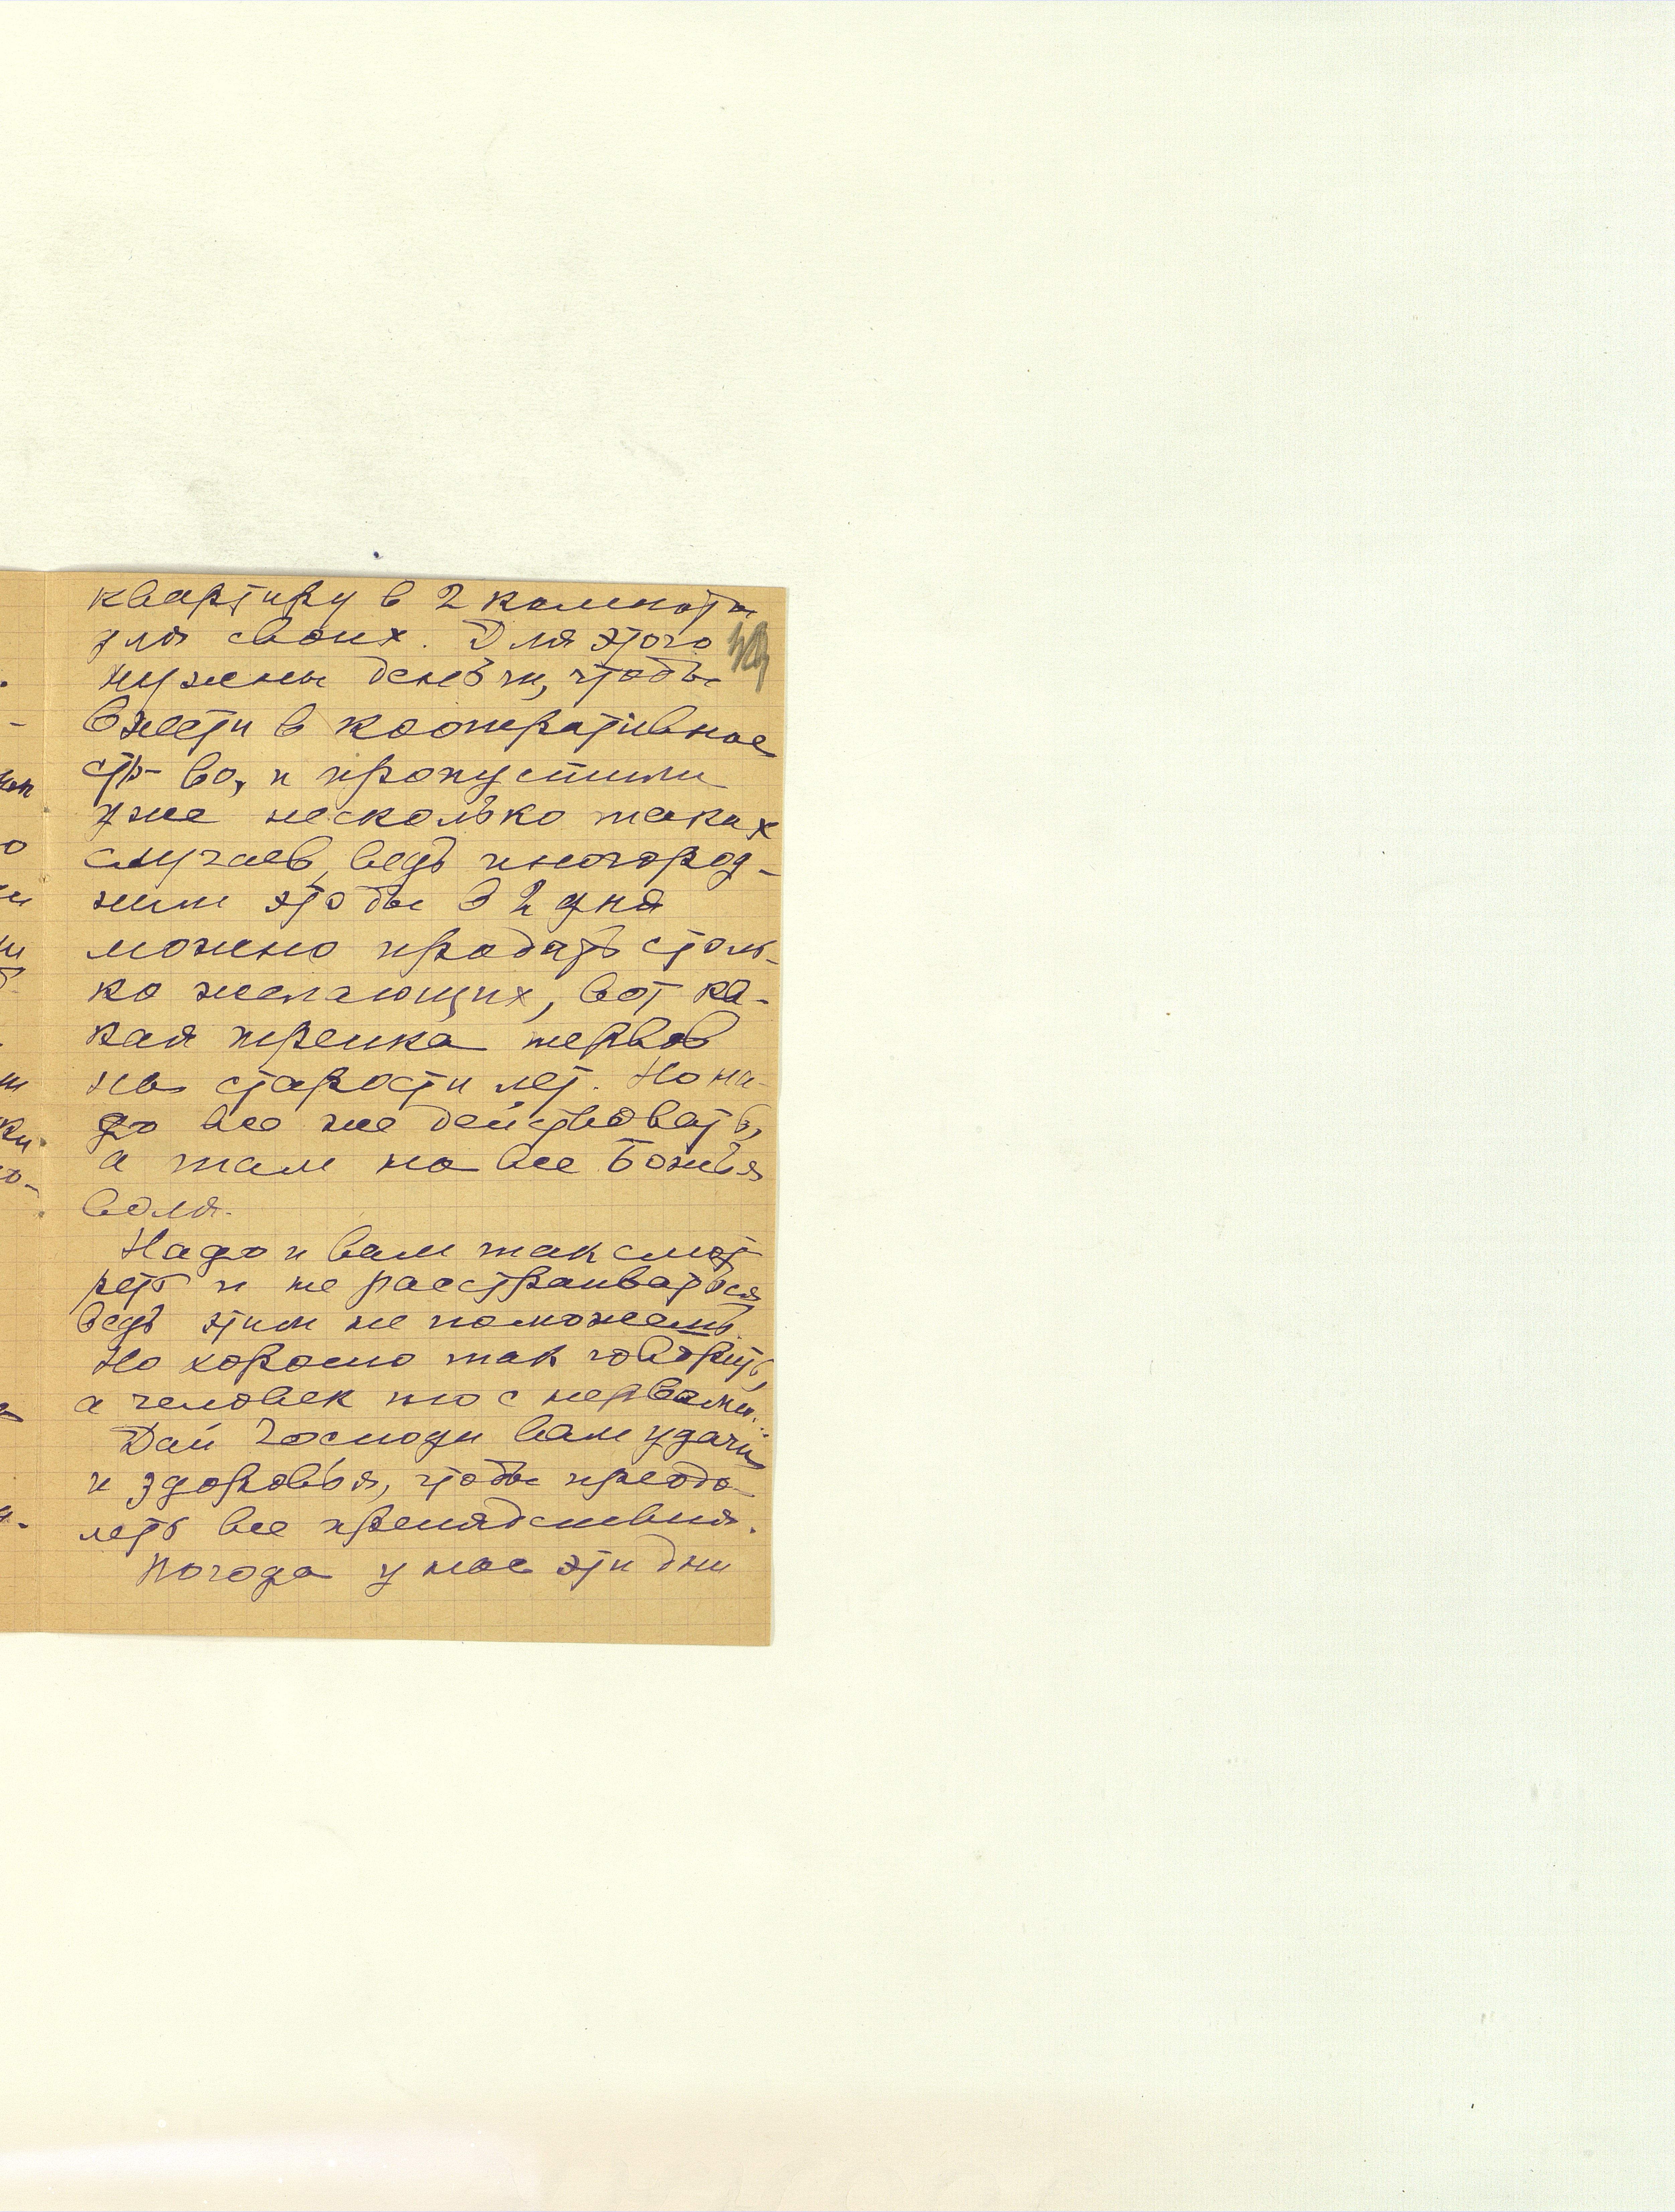 квартиру в 2 комнаты
для своих. Для этого
нужны деньги, чтобы
внести в кооперативное
стр-во, и пропустили
уже несколько таких
случаев, ведь иногород-
ним чтобы в 2 дня
можно продать столь-
ко желающих, вот ка-
кая трепка нервов
на старости лет. Но на-
до все же действовать,
а там на все Божья
воля.
Надо и вам так смот
реть и не расстраиваться
ведь этим не поможешь.
Но хорошо так говорить,
а человек то с нервами..
Дай Господи вам удачи
и здоровья, чтобы преодо-
леть все препядствия.
Погода у нас эти дни